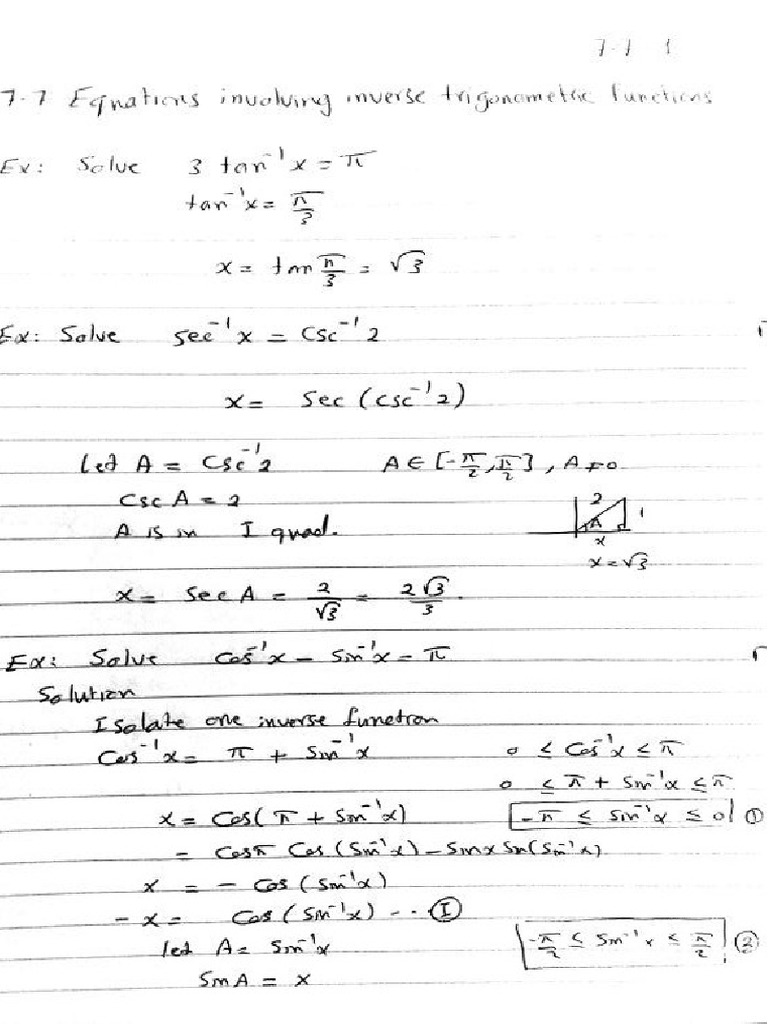 7-7 1
7-7 Equations involving inverse trigonometric functions
Ex: Solve 3 tan⁻¹x = π
tan⁻¹x = π/3
x = tan π/3 = √3
Ex: Solve sec⁻¹x = csc⁻¹2
x = sec (csc⁻¹2)
Let A = csc⁻¹2 A ∈ [-π/2, π/2], A ≠ 0
csc A = 2
A is in I quad.
2 1 A x
x = √3
x = sec A = 2/√3 = 2√3/3.
Ex: Solve cos⁻¹x - sin⁻¹x = π
Solution
Isolate one inverse function
cos⁻¹x = π + sin⁻¹x 0 ≤ cos⁻¹x ≤ π
0 ≤ π + sin⁻¹x ≤ π
x = cos(π + sin⁻¹x) -π ≤ sin⁻¹x ≤ 0 ①
= cosπ cos(sin⁻¹x) - sinπ sin(sin⁻¹x)
x = - cos (sin⁻¹x)
-x = cos (sin⁻¹x) --- Ⓘ
let A = sin⁻¹x -π/2 ≤ sin⁻¹x ≤ π/2 ②
sin A = x